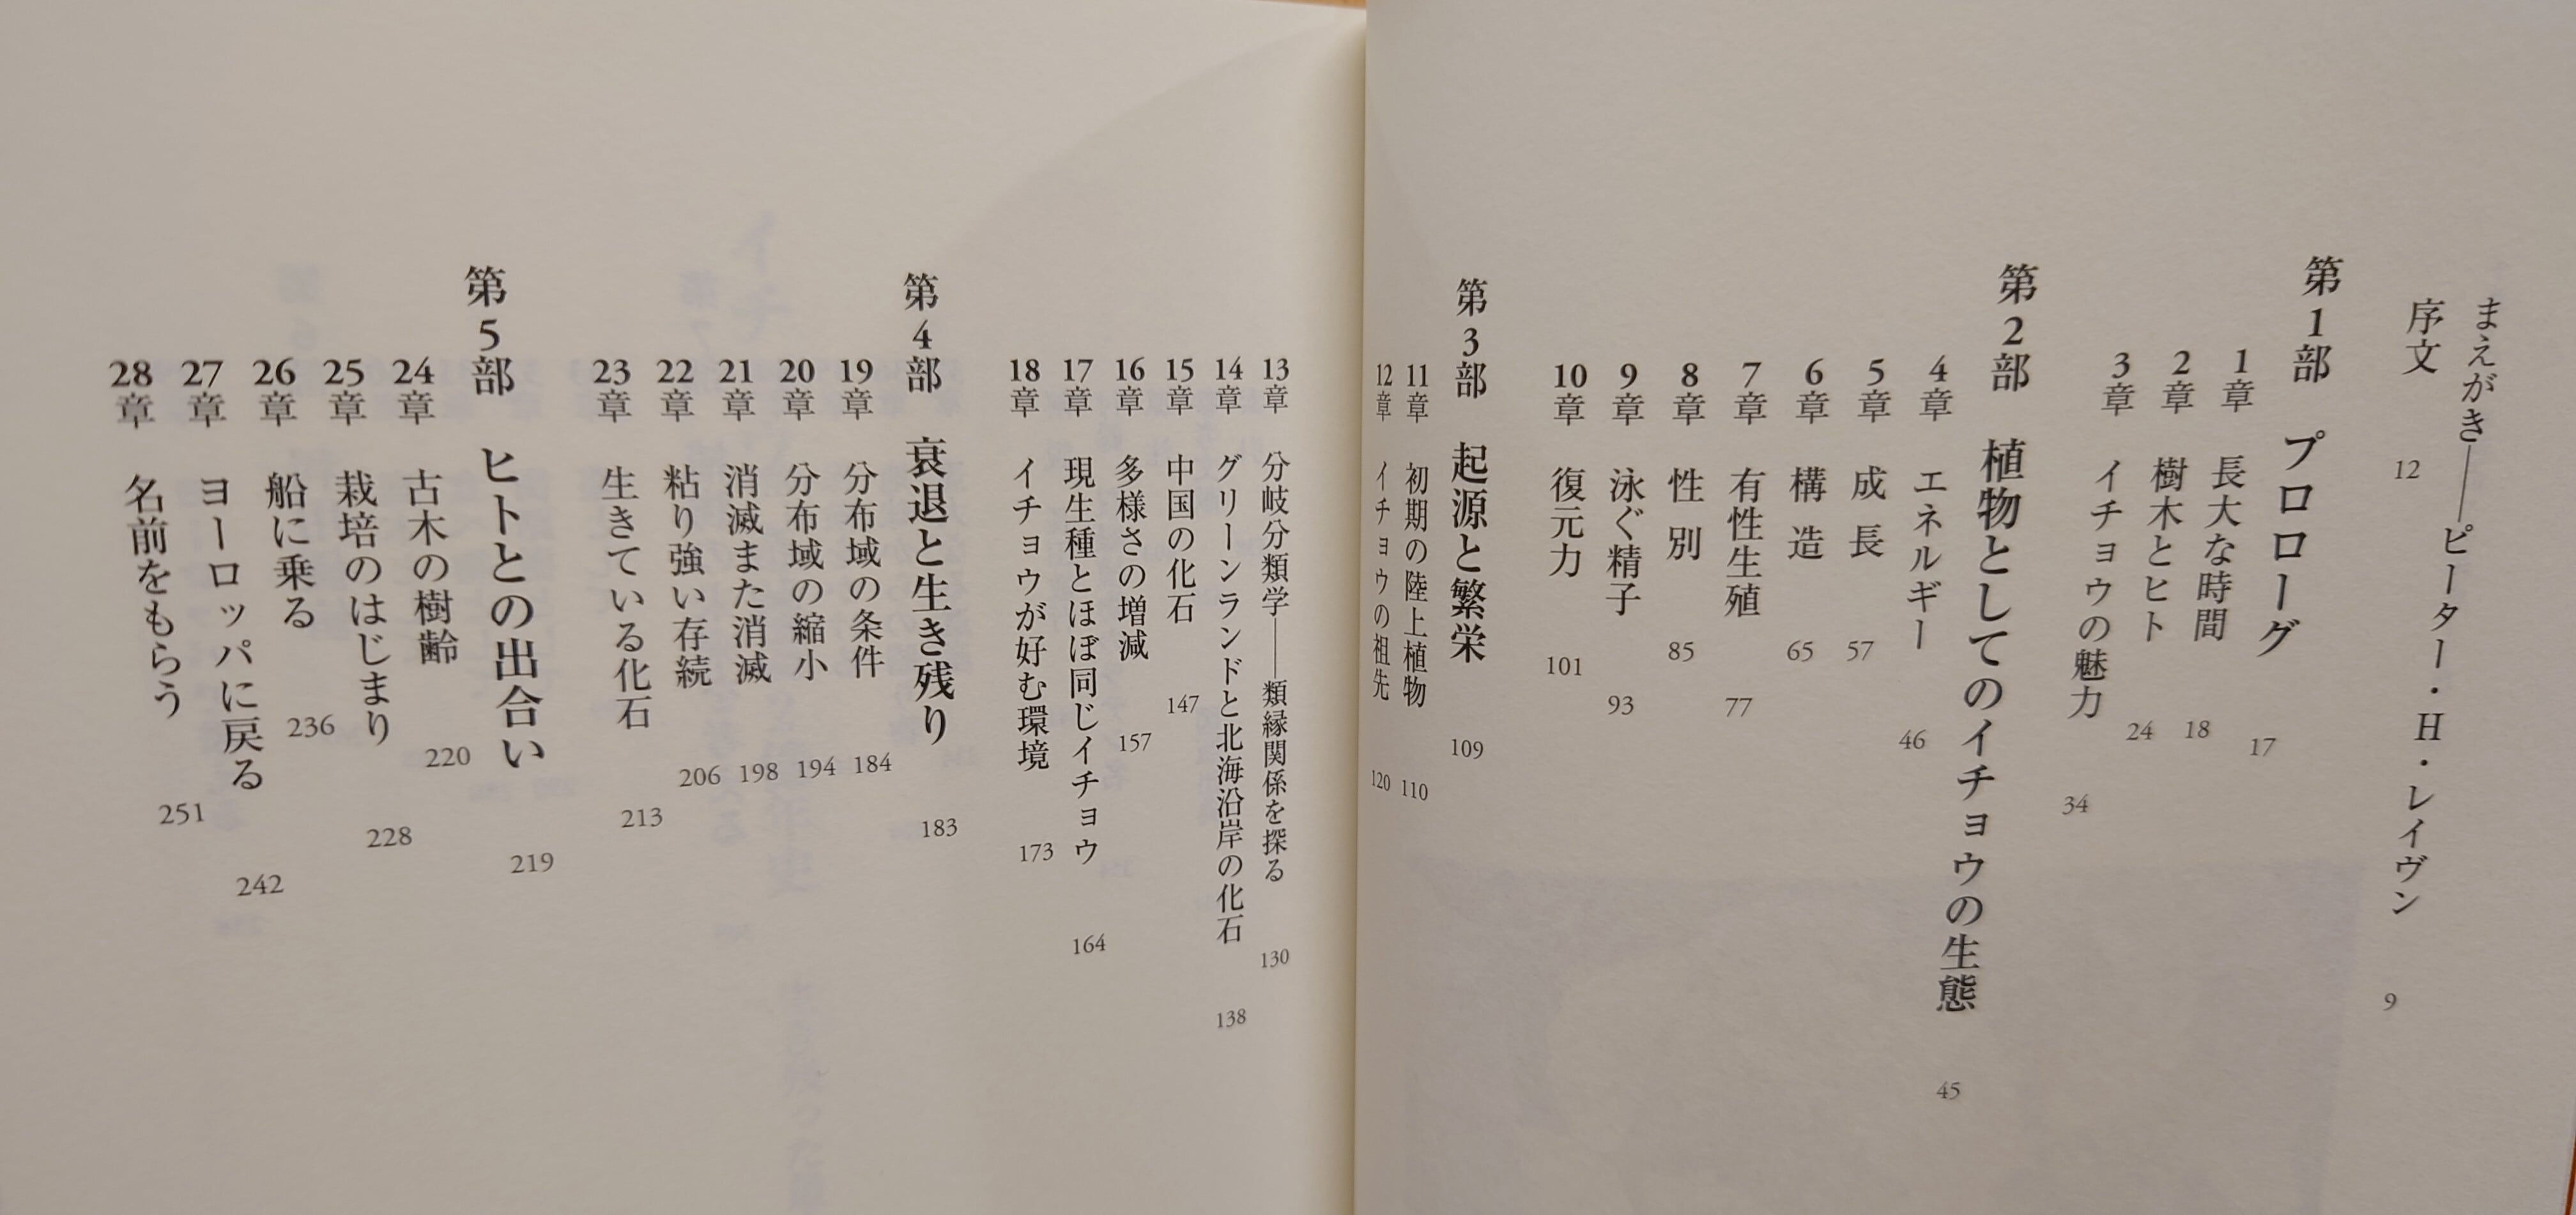 まえがき——ピーター・H・レイヴン 9
序文 12
第1部 プロローグ 17
1章 長大な時間 18
2章 樹木とヒト 24
3章 イチョウの魅力 34
第2部 植物としてのイチョウの生態 45
4章 エネルギー 46
5章 成長 57
6章 構造 65
7章 有性生殖 77
8章 性別 85
9章 泳ぐ精子 93
10章 復元力 101
第3部 起源と繁栄 109
11章 初期の陸上植物 110
12章 イチョウの祖先 120
13章 分岐分類学——類縁関係を探る 130
14章 グリーンランドと北海沿岸の化石 138
15章 中国の化石 147
16章 多様さの増減 157
17章 現生種とほぼ同じイチョウ 164
18章 イチョウが好む環境 173
第4部 衰退と生き残り 183
19章 分布域の条件 184
20章 分布域の縮小 194
21章 消滅また消滅 198
22章 粘り強い存続 206
23章 生きている化石 213
第5部 ヒトとの出合い 219
24章 古木の樹齢 220
25章 栽培のはじまり 228
26章 船に乗る 236
27章 ヨーロッパに戻る 242
28章 名前をもらう 251